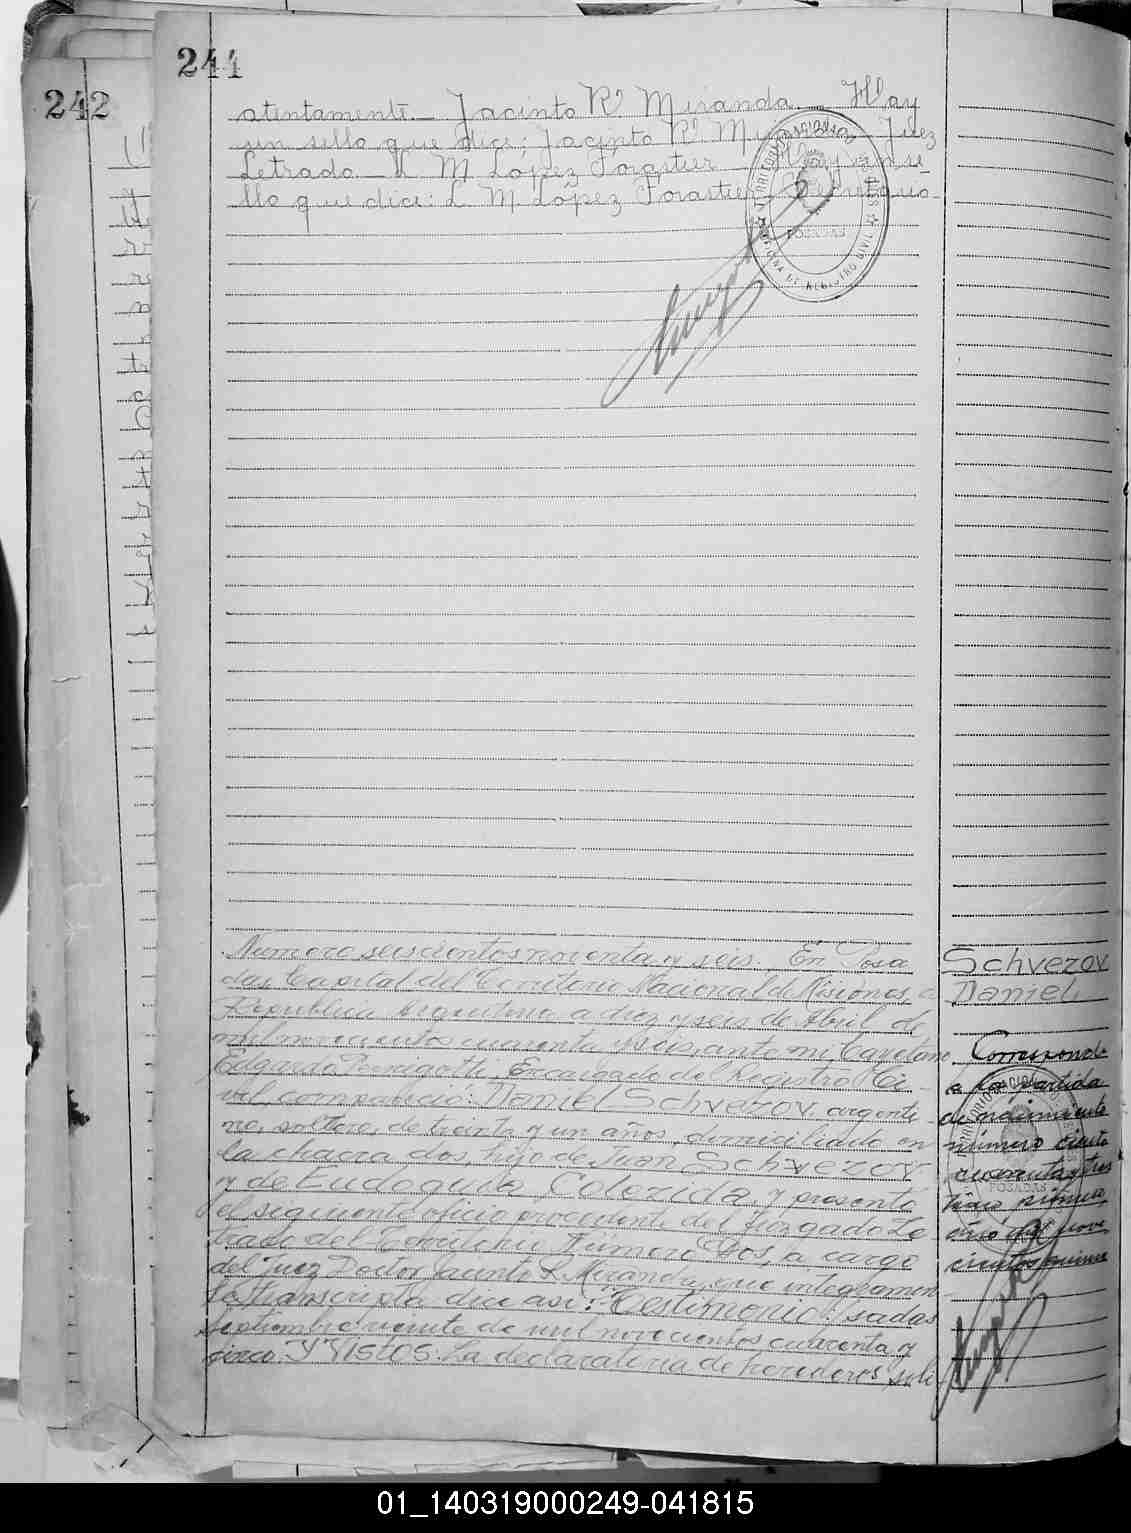 244
242
atentamente._ Jacinto R. Miranda._ Hay
un sello que dice: Jacinto R. Miranda Juez
Letrado._ L. M. López Forastier _ Hay un se-
llo que dice: L. M. López Forastier
POSADAS
Numero seiscientos noventa y seis. En Posa
das Capital del Territorio Nacional de Misiones, a
Republica Argentina a diez y seis de Abril de
mil novecientos cuarenta y seis, ante mi, Cayetano
Edgardo Encargado del Registro Ci-
vil, compareció: Daniel Schvezov, argenti-
no, soltero, de treinta y un años, domiciliado en
la chacra dos, hijo de Juan Schvezov
y de Eudoquia Colozida, y presentó
el siguiente oficio proveniente del Juzgado Le-
trado del Territorio Número Dos, a cargo
del Juez Doctor Jacinto R. Miranda, que integramen-
te transcripto dice asi: "Testimonio: Posadas
Septiembre veinte de mil novecientos cuarenta y
cinco. Y VISTOS: La declaratoria de herederos soli-
Schvezov
Daniel
Corresponde
a la partida
de nacimiento
número ciento
cuarenta y tres
tomo primero,
año mil nove
cientos quince
POSADAS
01_140319000249-041815